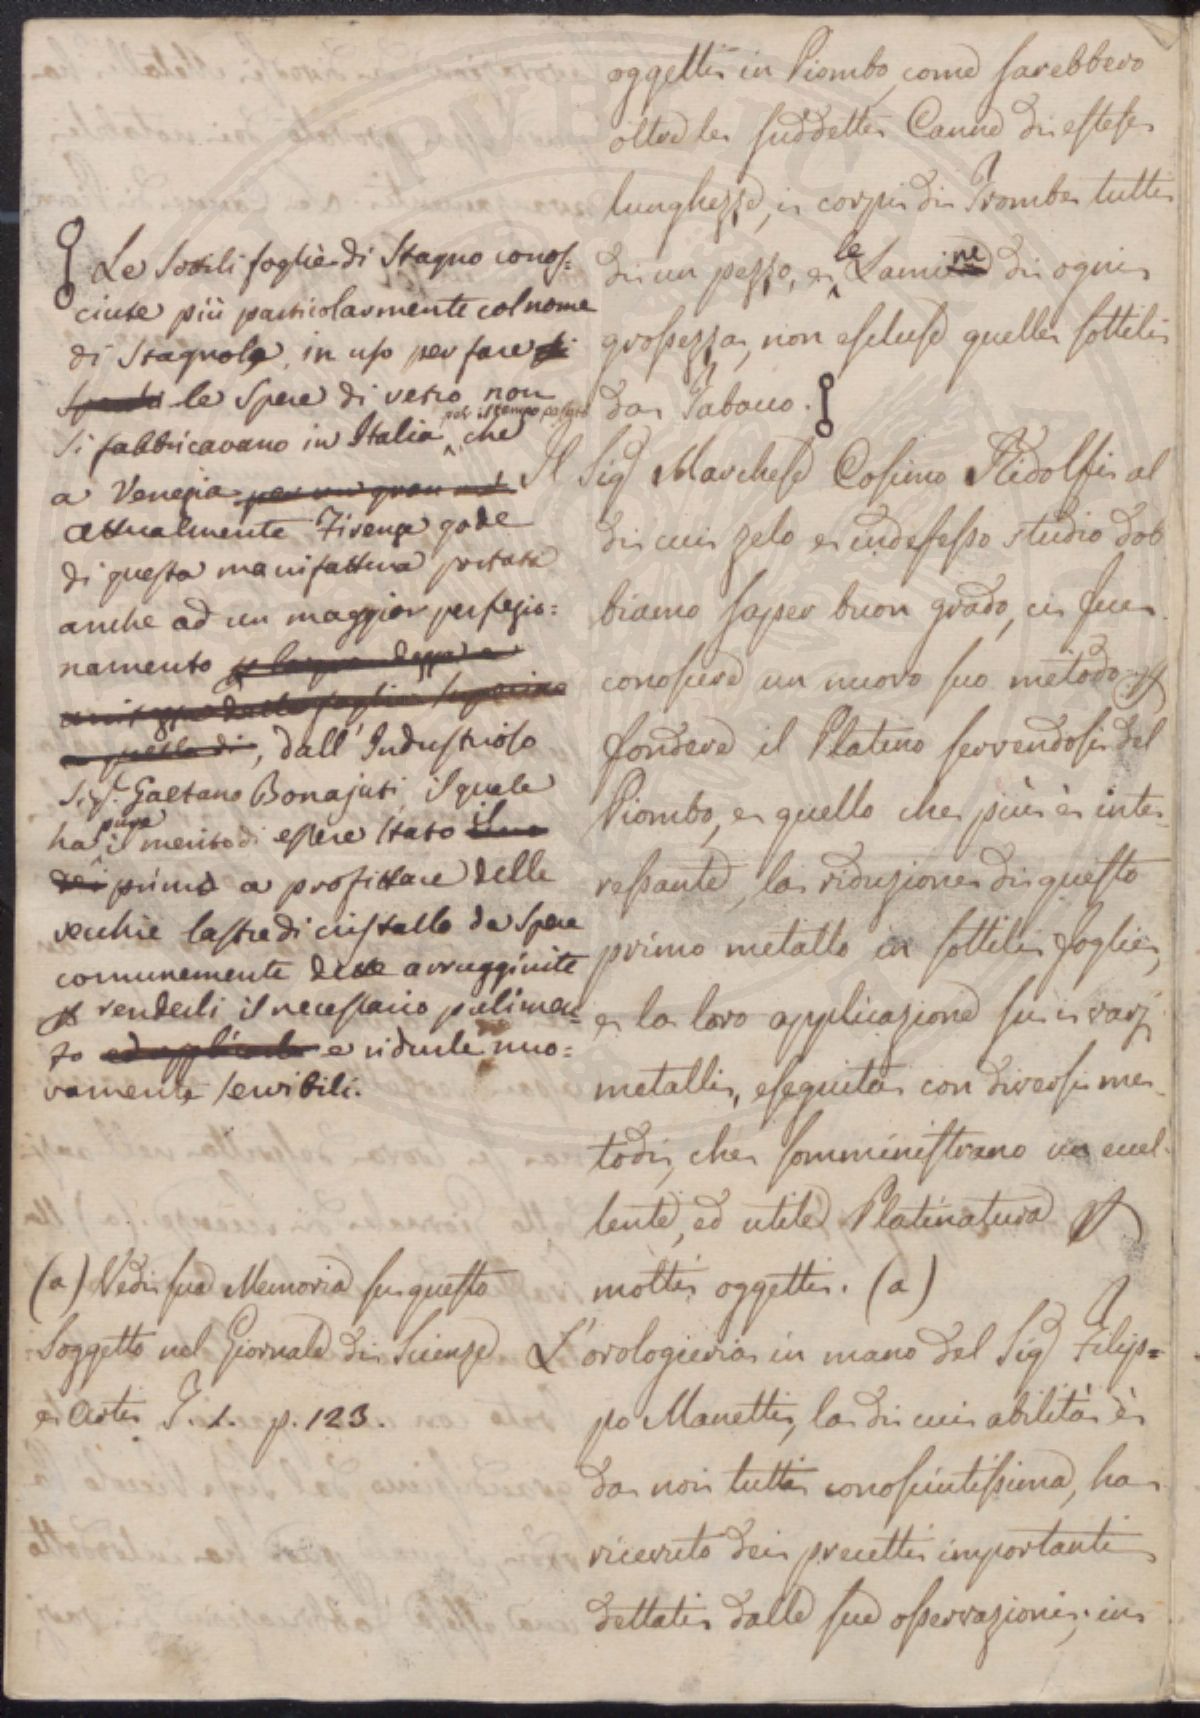 oggetti in Piombo, come sarebbero
oltre le suddette Canne di estese
lunghezze, i corpi di Trombe tutti
di un pezzo, e le Lamine di ogni
grossezza, non escluse quelle sottili
da Tabacco.
Il Sig.e Marchese Cosimo Ridolfi al
di cui zelo e indefesso studio dob
biamo saper buon grado, ci fece
conoscere un nuovo suo metodo p
fondere il Platino servendosi del
Piombo, e quello che più è inte-
ressante, la riduzione di questo
primo metallo in sottili foglie,
e la loro applicazione su i varj
metalli, eseguita con diversi me-
todi, che somministrano un eccel-
lente, ed utile Platinatura p
molti oggetti. (a)
L'orologieria in mano del Sig.e Filip=
po Manetti, la di cui abilità è
da noi tutti conosciutissima, ha
ricevuto dei precetti importanti
dettati dalle sue osservazioni; in
Le Sottili foglie di Stagno conos=
ciute più particolarmente col nome
di Stagnola, in uso per fare di
le Spere di vetro non
si fabbricavano in Italia, pel tempo passato che
a Venezia per un gran
attualmente Firenze gode
di questa manifattura portata
anche ad un maggior perfezio=
namento
, dall'Industrioso
Sig.r Gaetano Bonajuti, il quale
ha pure il merito di essere stato
dei primo a profittare delle
vecchie lastre di cristallo da Spere
comunemente dette arrugginite
p renderli il necessario pulimen=
to ed applicarle e ridurle nuo=
vamente servibili.
(a) Vedi sua Memoria su questo
Soggetto nel Giornale di Scienze
e Arti T. 1. p. 123.